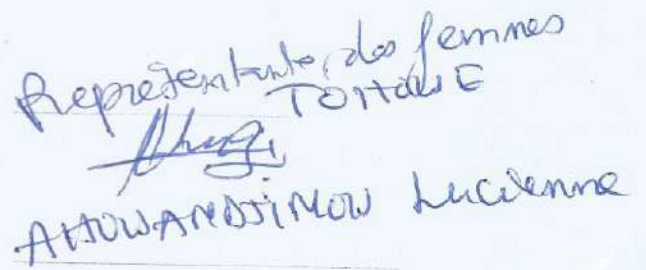 Représentante des femmes
TOHOUE
AHOUANDJINOU Lucienne